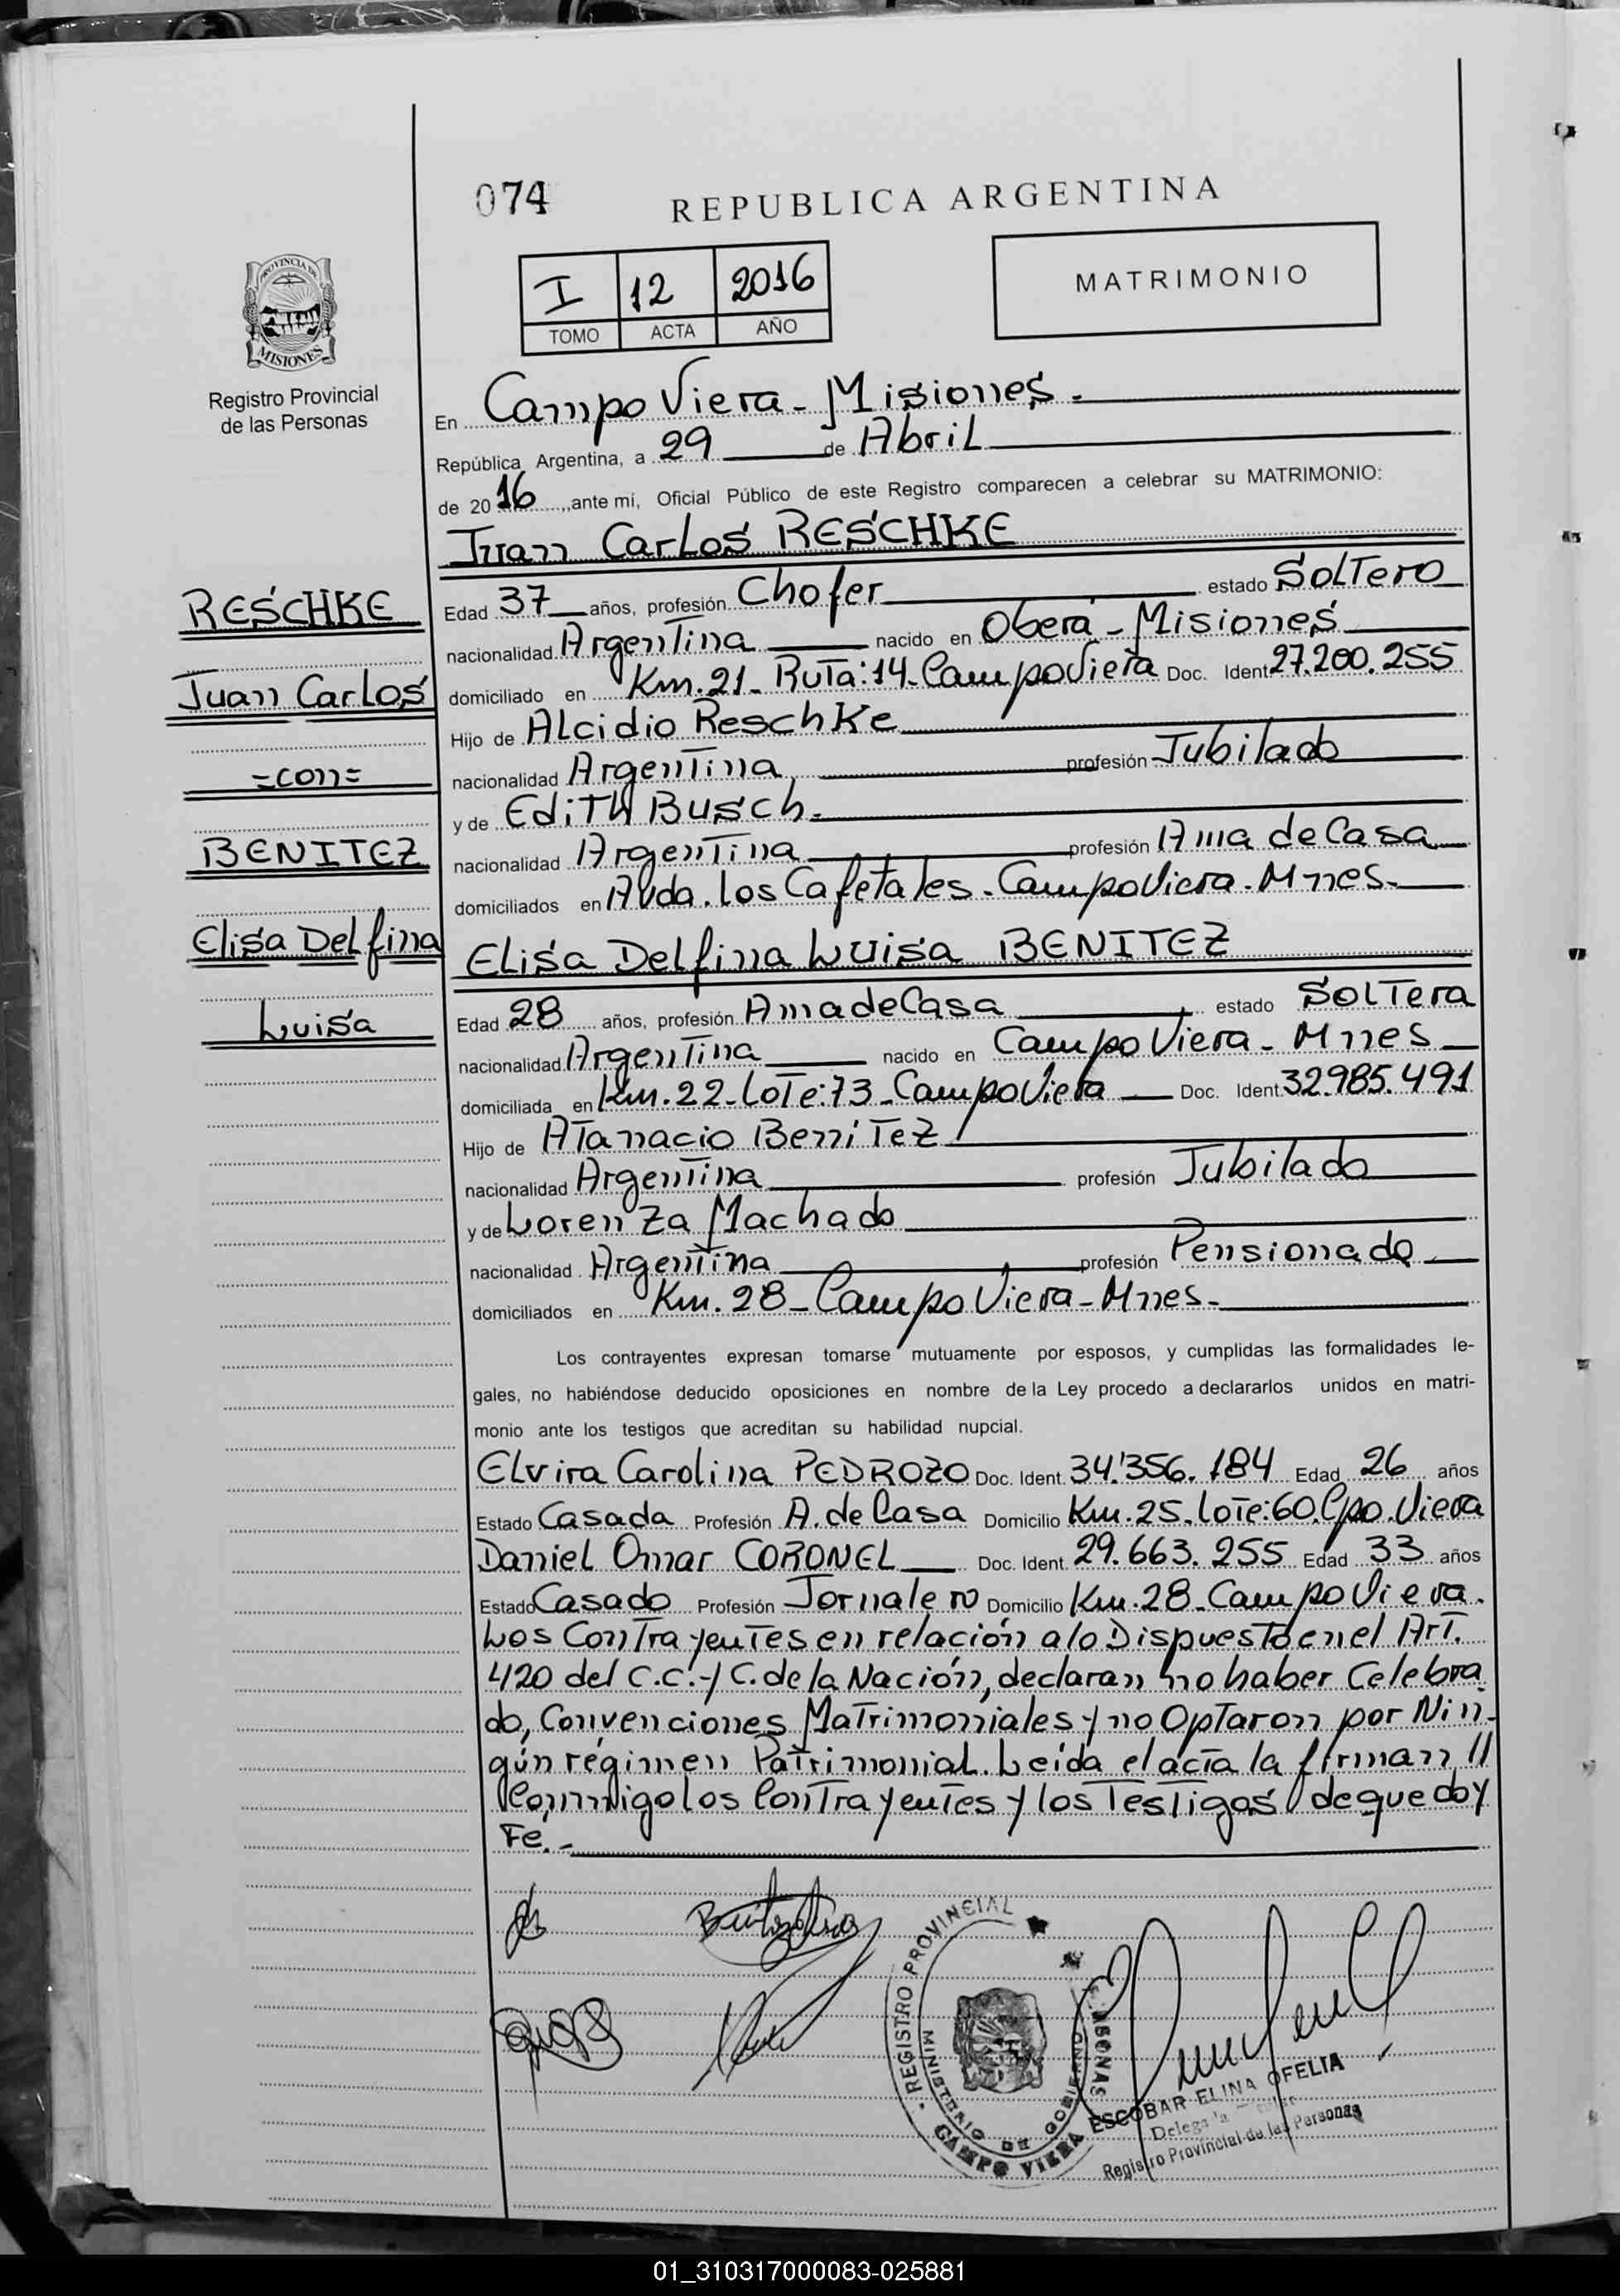 074
REPUBLICA ARGENTINA
PROVINCIA DE
MISIONES
Registro Provincial
de las Personas
I 12 2016
TOMO ACTA AÑO
MATRIMONIO
En Campo Viera - Misiones.-
República Argentina, a 29 de Abril
de 2016, ante mí, Oficial Público de este Registro comparecen a celebrar su MATRIMONIO:
Juan Carlos RESCHKE
Edad 37 años, profesión Chofer estado Soltero
nacionalidad Argentina nacido en Oberá - Misiones
domiciliado en Km. 21 - Ruta: 14 - Campo Viera Doc. Ident 27.200.255
Hijo de Alcidio Reschke
nacionalidad Argentina profesión Jubilado
y de Edith Busch.-
nacionalidad Argentina profesión Ama de Casa
domiciliados en Avda. Los Cafetales - Campo Viera - Mnes.-
RESCHKE
Juan Carlos
=con=
BENITEZ
Elisa Delfina
Luisa
Elisa Delfina Luisa BENITEZ
Edad 28 años, profesión Ama de Casa estado Soltera
nacionalidad Argentina nacido en Campo Viera - Mnes
domiciliada en Km. 22 - Lote: 73 - Campo Viera Doc. Ident. 32.985.491
Hijo de Atanacio Benitez
nacionalidad Argentina profesión Jubilado
y de Lorenza Machado
nacionalidad Argentina profesión Pensionada
domiciliados en Km. 28 - Campo Viera - Mnes.-
Los contrayentes expresan tomarse mutuamente por esposos, y cumplidas las formalidades le-
gales, no habiéndose deducido oposiciones en nombre de la Ley procedo a declararlos unidos en matri-
monio ante los testigos que acreditan su habilidad nupcial.
Elvira Carolina PEDROZO Doc. Ident. 34.356.184 Edad 26 años
Estado Casada Profesión A. de Casa Domicilio Km. 25 - Lote: 60. Cpo. Viera
Daniel Omar CORONEL Doc. Ident. 29.663.255 Edad 33 años
Estado Casado Profesión Jornalero Domicilio Km. 28 - Campo Viera.
Los Contrayentes en relación a lo Dispuesto en el Art.
420 del C.C. y C. de la Nación, declaran no haber Celebra
do, Convenciones Matrimoniales y no Optaron por Nin-
gún régimen Patrimonial. Leída el acta la firman //
Conmigo los Contrayentes y los Testigos de que doy
Fe.-
REGISTRO PROVINCIAL
MINISTERIO DE GOBIERNO
CAMPO VIERA
ESCOBAR ELINA OFELIA
Registro Provincial de las Personas
01_310317000083-025881